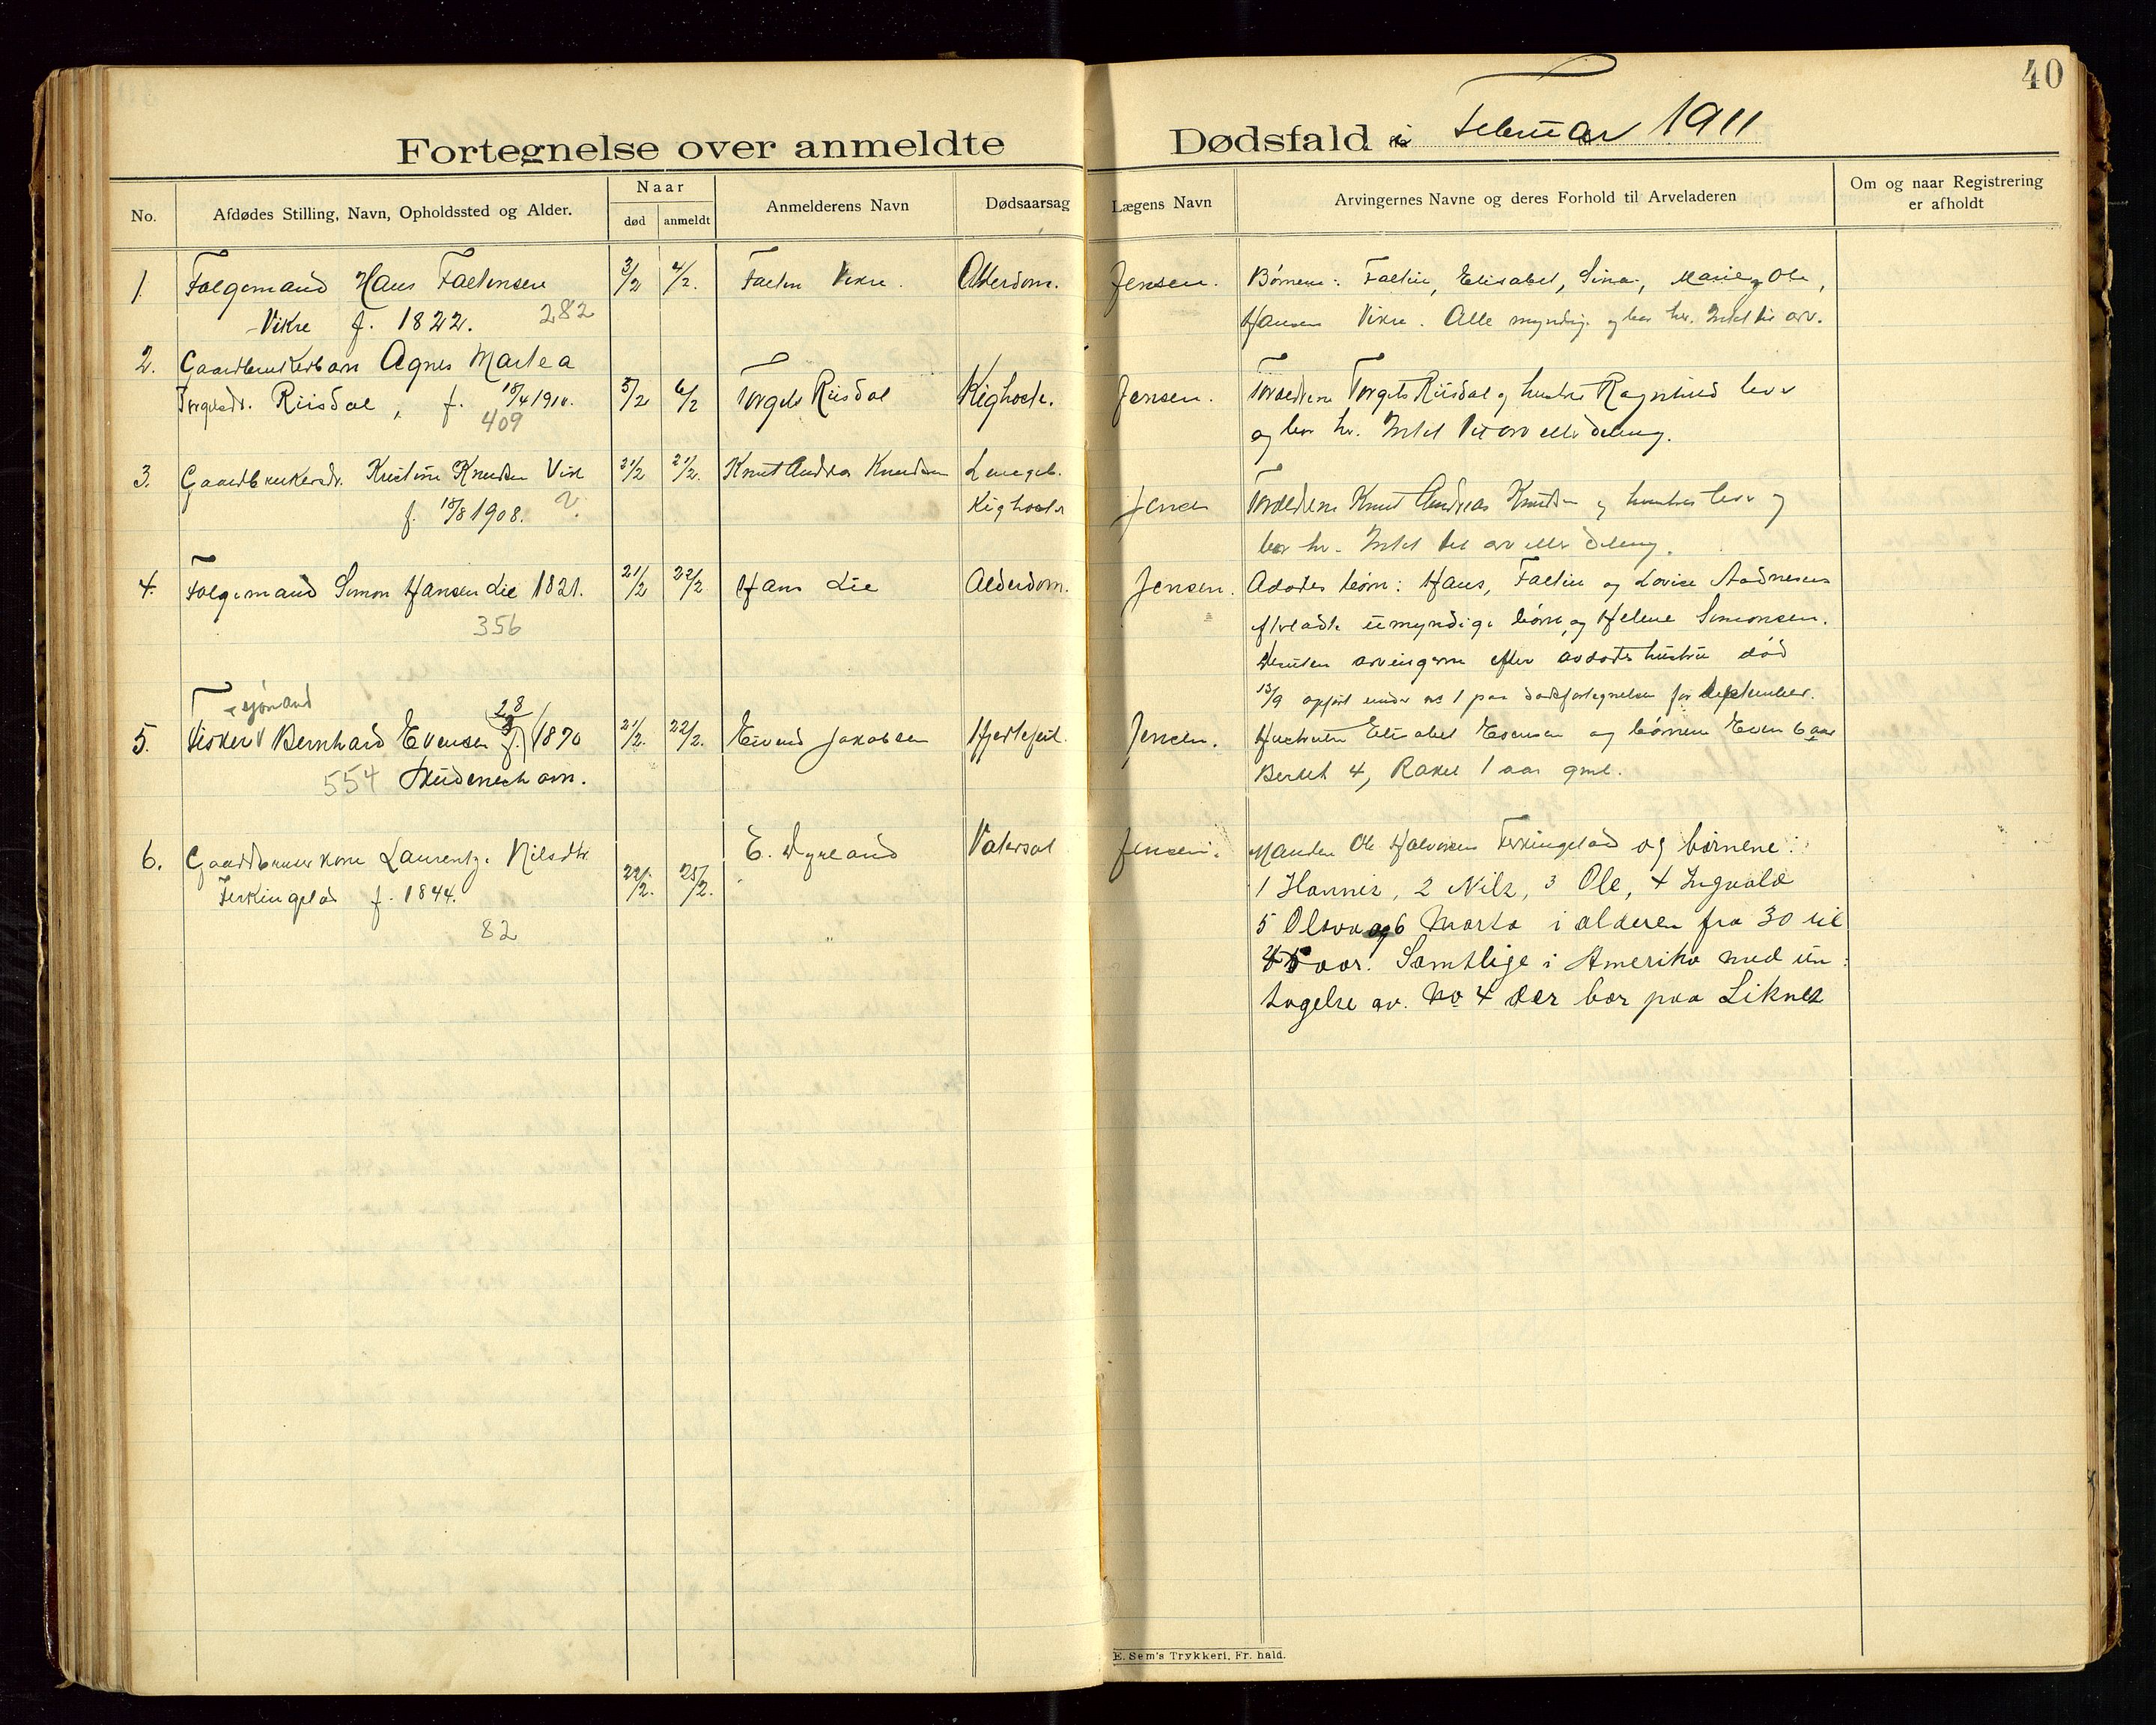 40
Fortegnelse over anmeldte Dødsfald i Februar 1911
No. Afdødes Stilling, Navn, Opholdssted og Alder. Naar død anmeldt Anmelderens Navn Dødsaarsag Lægens Navn Arvingernes Navne og deres Forhold til Arveladeren Om og naar Registrering er afholdt
1. Folgemand Hans Faltinsen 3/2 4/2. Faltin Vikre. Alderdom. Jensen. Børnene: Faltin, Elisabet, Sina, Marie og Ole,
Vikre f. 1822. 282 Hansen Vikre. Alle myndig. og bor her. Intet til arv.
2. Gaardbrukerbarn Agnes Martea
Torgelsdr. Riisdal, f. 18/4 1910. 5/2 6/2 Torgels Riisdal Kighoste. Jensen. Foraeldrene Torgels Riisdal og hustru Ragnhild lever
409 og bor her. Intet til arv eller deling.
3. Gaardbrukersdr. Kristine Knudsen Vik 21/2 21/2. Knut Andreas Knudsen Lungeb.
f. 18/8 1908. 2. Kighoste Jensen Foraeldrene Knut Andreas Knudsen og hustru lever og
bor her. Intet til arv eller deling.
4. Folgemand Simon Hansen Lie 1821. 21/2 22/2 Hans Lie Alderdom. Jensen. Avdødes børn: Hans, Faltin og Lovise Aadnesens
356 efterladte umyndige børn, og Helene Simonsen.
Desuten arvingerne efter avdødes hustru død
13/9 opført under no 1 paa dødsfortegnelsen for September.
sjømand
5. Fisker Bernhard Evensen f. 28/8 1870 21/2. 22/2. Eivind Jakobsen Hjertefeil. Jensen. Hustruen Elisabet Evensen og børnene Even 6 aar
554 Skudeneshavn. Bertet 4, Rakel 1 aar gml.
6. Gaardbruker kone Laurentze Nilsdtr. E. Dyrland Vatersot Jensen. Manden Ole Halvorsen Ferkingstad og børnene:
Ferkingstad f. 1844. 22/2. 25/2. 1 Hannes, 2 Nils, 3 Ole, 4 Ingvald
82 5 Olava og 6 Marta i alderen fra 30 til
45 aar. Samtlige i Amerika med un-
tagelse av. No 4 der bor paa Liknes
E. Sem's Trykkeri, Fr. hald.